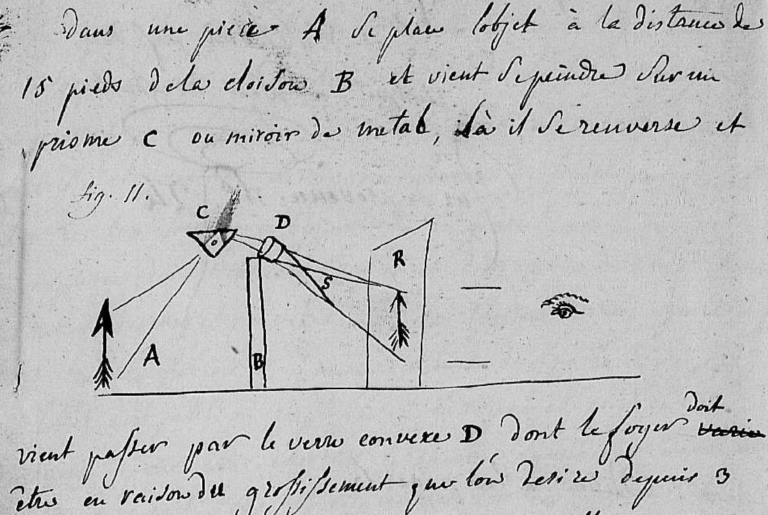 dans une pièce A se place l'objet à la distance de
15 pieds de la cloison B et vient se peindre sur un
prisme C ou miroir de metal, là il se renverse et
fig. 11.
C
D
R
S
A
B
vient passer par le verre convexe D dont le foyer doit varie
être en raison du grossissement que l'on desire depuis 3